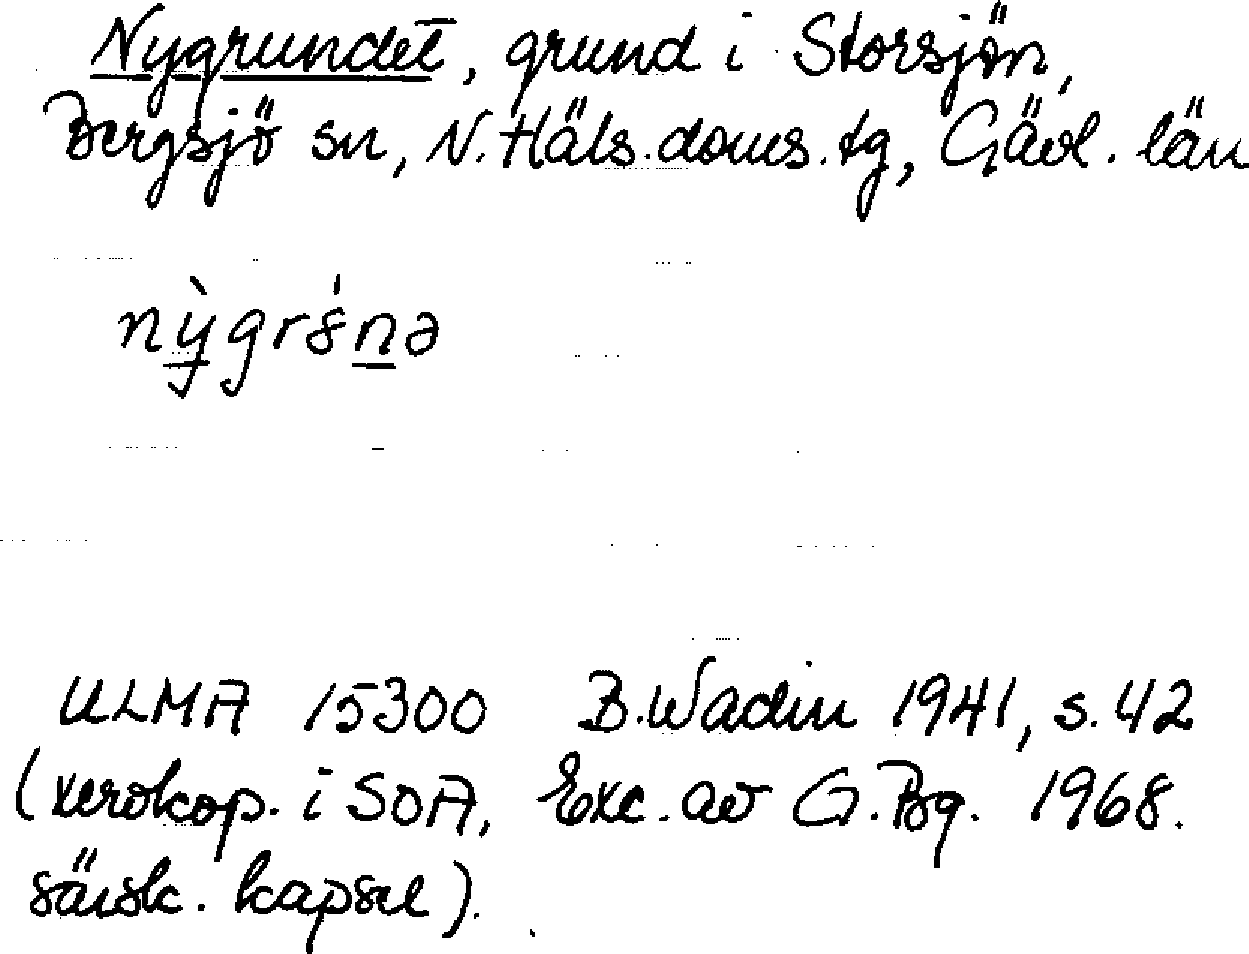 Nygrundet, grund i Storsjön,
Bergsjö sn, N. Häls. doms. tg, Gävl. län
ULMA 15300 B. Wadin 1941, s. 42
(xerokop. i SOA, Exc. av G. Bg. 1968.
särsk. kapsel).